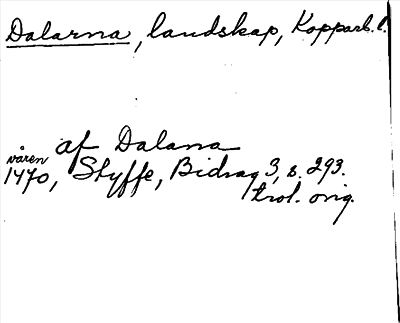 Dalarna, landskap, Kopparb. l.
af Dalana
våren
1470, Styffe, Bidrag 3, s. 293.
trol. orig.